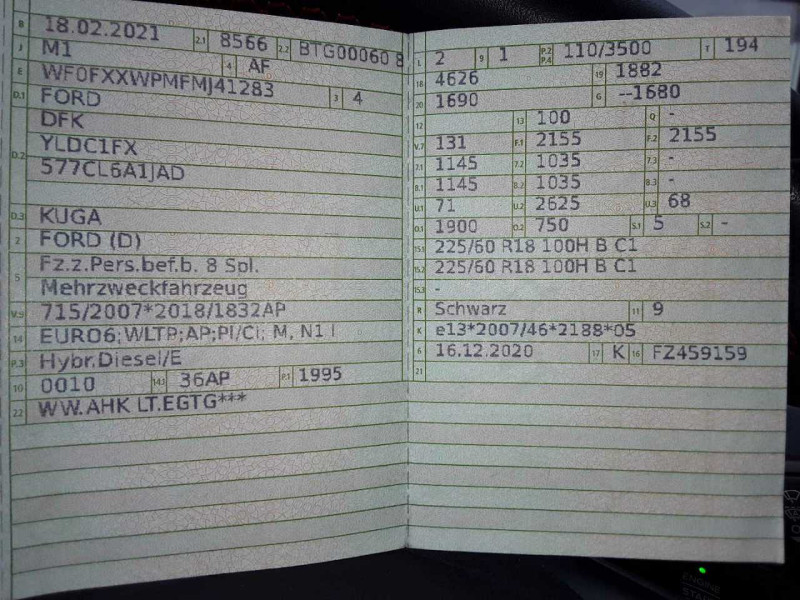 B 18.02.2021 2.1 8566 2.2 BTG00060 8
J M1 4 AF
E WF0FXXWPMFMJ41283 3 4
D.1 FORD
DFK
D.2 YLDC1FX
577CL6A1JAD
D.3 KUGA
2 FORD (D)
5 Fz.z.Pers.bef.b. 8 Spl.
Mehrzweckfahrzeug
V.9 715/2007*2018/1832AP
14 EURO6;WLTP;AP;PI/CI; M, N1 I
P.3 Hybr.Diesel/E
10 0010 14.1 36AP P.1 1995
22 WW.AHK LT.EGTG***
L 2 9 1 P.2 P.4 110/3500 T 194
18 4626 19 1882
20 1690 G --1680
12 13 100 Q -
V.7 131 F.1 2155 F.2 2155
7.1 1145 7.2 1035 7.3 -
8.1 1145 8.2 1035 8.3 -
U.1 71 U.2 2625 U.3 68
O.1 1900 O.2 750 S.1 5 S.2 -
15.1 225/60 R18 100H B C1
15.2 225/60 R18 100H B C1
15.3 -
R Schwarz 11 9
K e13*2007/46*2188*05
6 16.12.2020 17 K 16 FZ459159
21
ENGINE
START